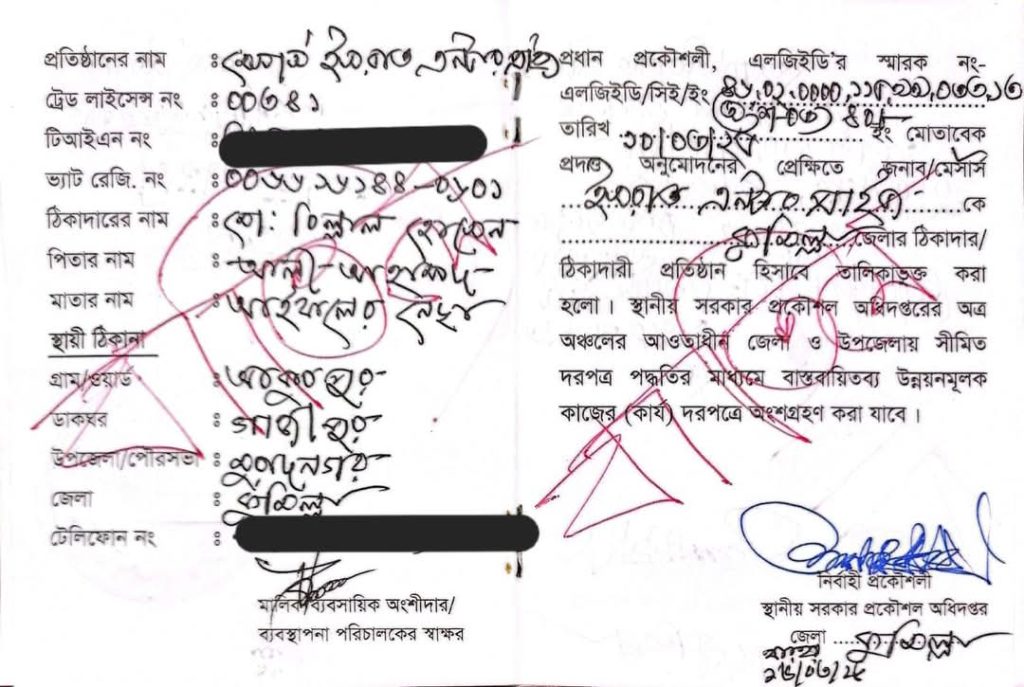 প্রতিষ্ঠানের নাম : মেসার্স ইসরাত এন্টারপ্রাইজ
ট্রেড লাইসেন্স নং : ০০৩৪১
টিআইএন নং :
ভ্যাট রেজি. নং :
ঠিকাদারের নাম : মো: বিল্লাল হোসেন
পিতার নাম : আলী আহাম্মদ
মাতার নাম : নেছা
স্থায়ী ঠিকানা
গ্রাম/ওয়ার্ড :
ডাকঘর : গাজীপুর
উপজেলা/পৌরসভা : মুরাদনগর
জেলা : কুমিল্লা
টেলিফোন নং :
মালিক/ব্যবসায়িক অংশীদার/
ব্যবস্থাপনা পরিচালকের স্বাক্ষর
প্রধান প্রকৌশলী, এলজিইডি'র স্মারক নং-
এলজিইডি/সিই/ইং
তারিখ ইং মোতাবেক
প্রদত্ত অনুমোদনের প্রেক্ষিতে জনাব/মেসার্স
ইসরাত এন্টারপ্রাইজ কে
কুমিল্লা জেলার ঠিকাদার/
ঠিকাদারী প্রতিষ্ঠান হিসাবে তালিকাভুক্ত করা
হলো। স্থানীয় সরকার প্রকৌশল অধিদপ্তরের অত্র
অঞ্চলের আওতাধীন জেলা ও উপজেলায় সীমিত
দরপত্র পদ্ধতির মাধ্যমে বাস্তবায়িতব্য উন্নয়নমূলক
কাজের (কার্য) দরপত্রে অংশগ্রহণ করা যাবে।
নির্বাহী প্রকৌশলী
স্থানীয় সরকার প্রকৌশল অধিদপ্তর
জেলা কুমিল্লা